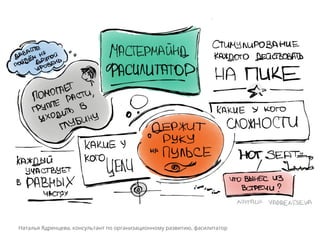 ДАВАЙТЕ
ПОЙДЁМ НА
ДРУГОЙ
УРОВЕНЬ
МАСТЕРМАЙНД
ФАСИЛИТАТОР
СТИМУЛИРОВАНИЕ
КАЖДОГО ДЕЙСТВОВАТЬ
НА ПИКЕ
ПОМОГАЕТ
ГРУППЕ РАСТИ,
УХОДИТЬ В
ГЛУБИНУ
КАКИЕ У КОГО
СЛОЖНОСТИ
ДЕРЖИТ
РУКУ
НА ПУЛЬСЕ
КАКИЕ У
КОГО ЦЕЛИ
КАЖДЫЙ
УЧАСТВУЕТ
В РАВНЫХ
ЧАСТЯХ
HOT SEAT
ЧТО ВЫНЕС ИЗ
ВСТРЕЧИ?
NATALIA YADRENTSEVA
Наталья Ядренцева, консультант по организационному развитию, фасилитатор